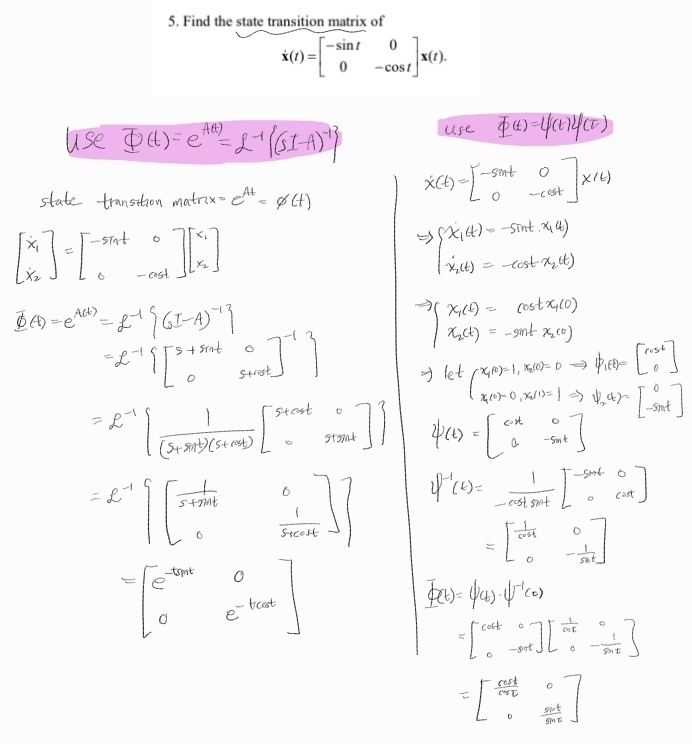 5. Find the state transition matrix of
ẋ(t) = [-sin t 0; 0 -cos t] x(t).
use Φ(t) = e^{A(t)} = ℒ^{-1}{(SI-A)^{-1}}
state transition matrix = e^{At} = φ(t)
[ẋ₁; ẋ₂] = [-sint 0; 0 -cost] [x₁; x₂]
Φ(t) = e^{A(t)} = ℒ^{-1}{(SI-A)^{-1}}
= ℒ^{-1}{[s+sint 0; 0 s+cost]^{-1}}
= ℒ^{-1}{1/((s+sint)(s+cost)) [s+cost 0; 0 s+sint]}
= ℒ^{-1}{[1/(s+sint) 0; 0 1/(s+cost)]}
= [e^{-tsint} 0; 0 e^{-tcost}]
use Φ(t) = ψ(t)ψ(τ)
ẋ(t) = [-sint 0; 0 -cost] x(t)
⇒ { ẋ₁(t) = -sint·x₁(t)
ẋ₂(t) = -cost·x₂(t)
⇒ { x₁(t) = cost x₁(0)
x₂(t) = -sint x₂(0)
⇒ let ( x₁(0)=1, x₂(0)=0 ⇒ ψ₁(t) = [cost; 0]
x₁(0)=0, x₂(0)=1 ⇒ ψ₂(t) = [0; -sint]
ψ(t) = [cost 0; 0 -sint]
ψ^{-1}(t) = 1/(-cost sint) [-sint 0; 0 cost]
= [1/cost 0; 0 -1/sint]
Φ(t) = ψ(t)·ψ^{-1}(τ)
= [cost 0; 0 -sint] [1/cosτ 0; 0 -1/sinτ]
= [cost/cosτ 0; 0 sint/sinτ]